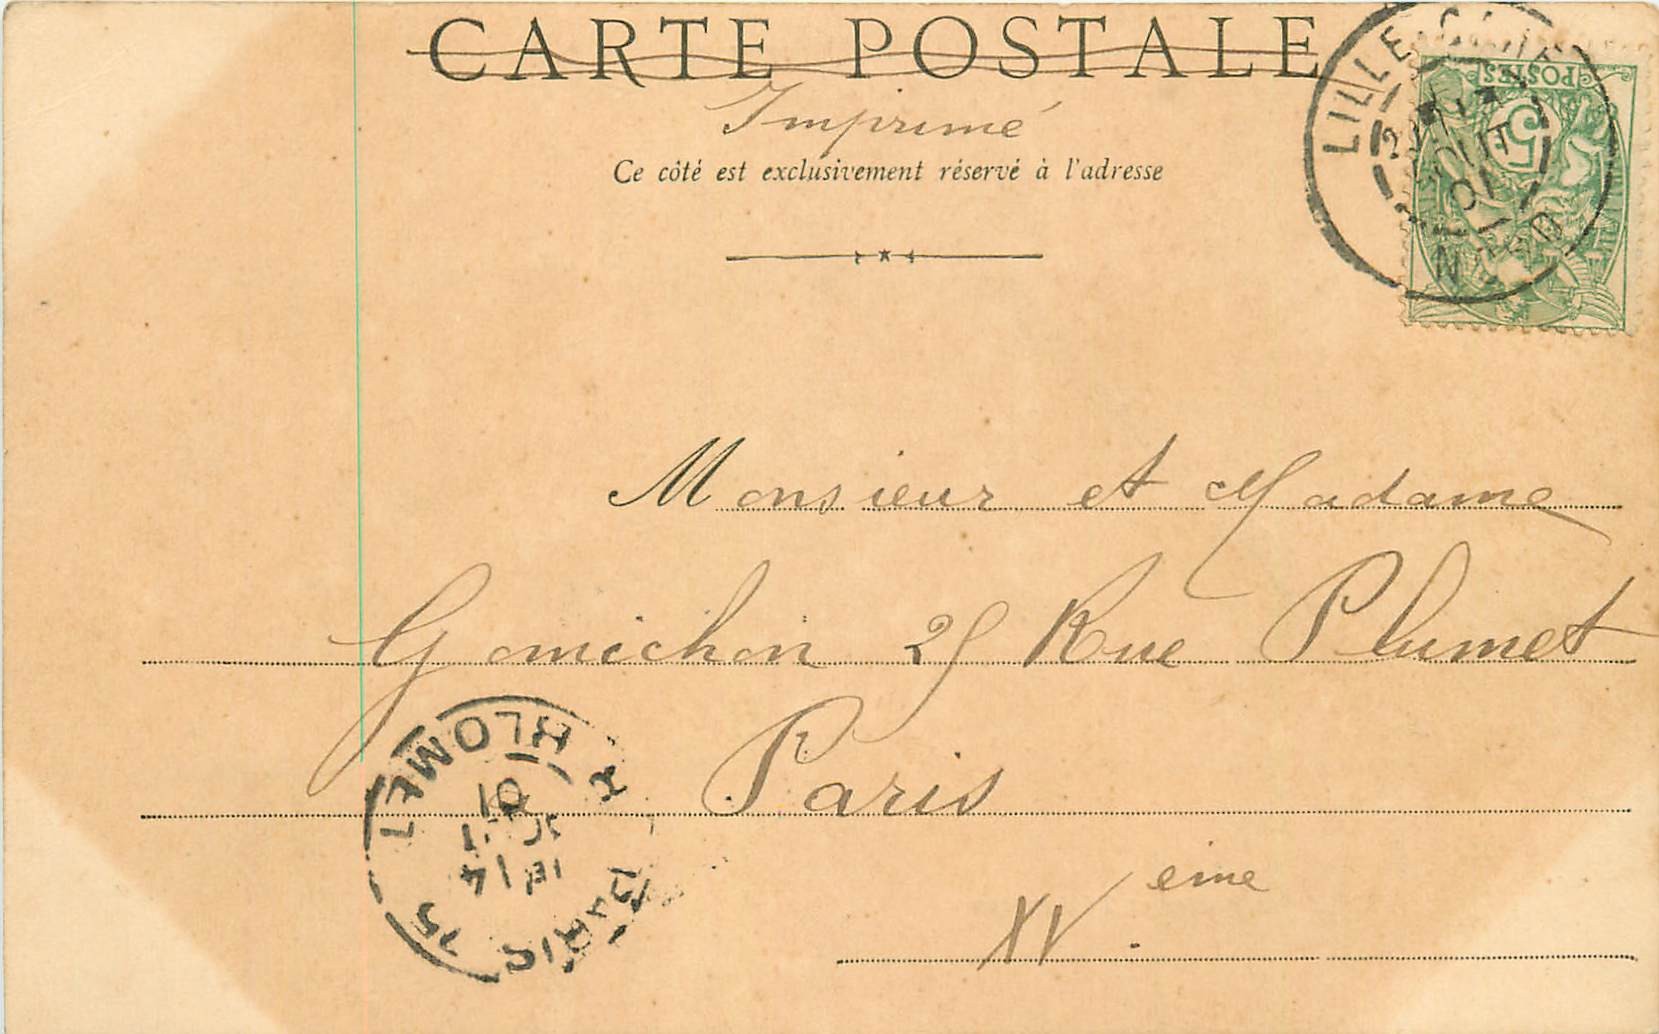 CARTE POSTALE
Imprimé
Ce côté est exclusivement réservé à l'adresse
LILLE
NORD
01
POSTES
5
Monsieur et Madame
Gomichon 25 Rue Plumet
Paris
XVeme
PARIS
75
14
01
BLOMET